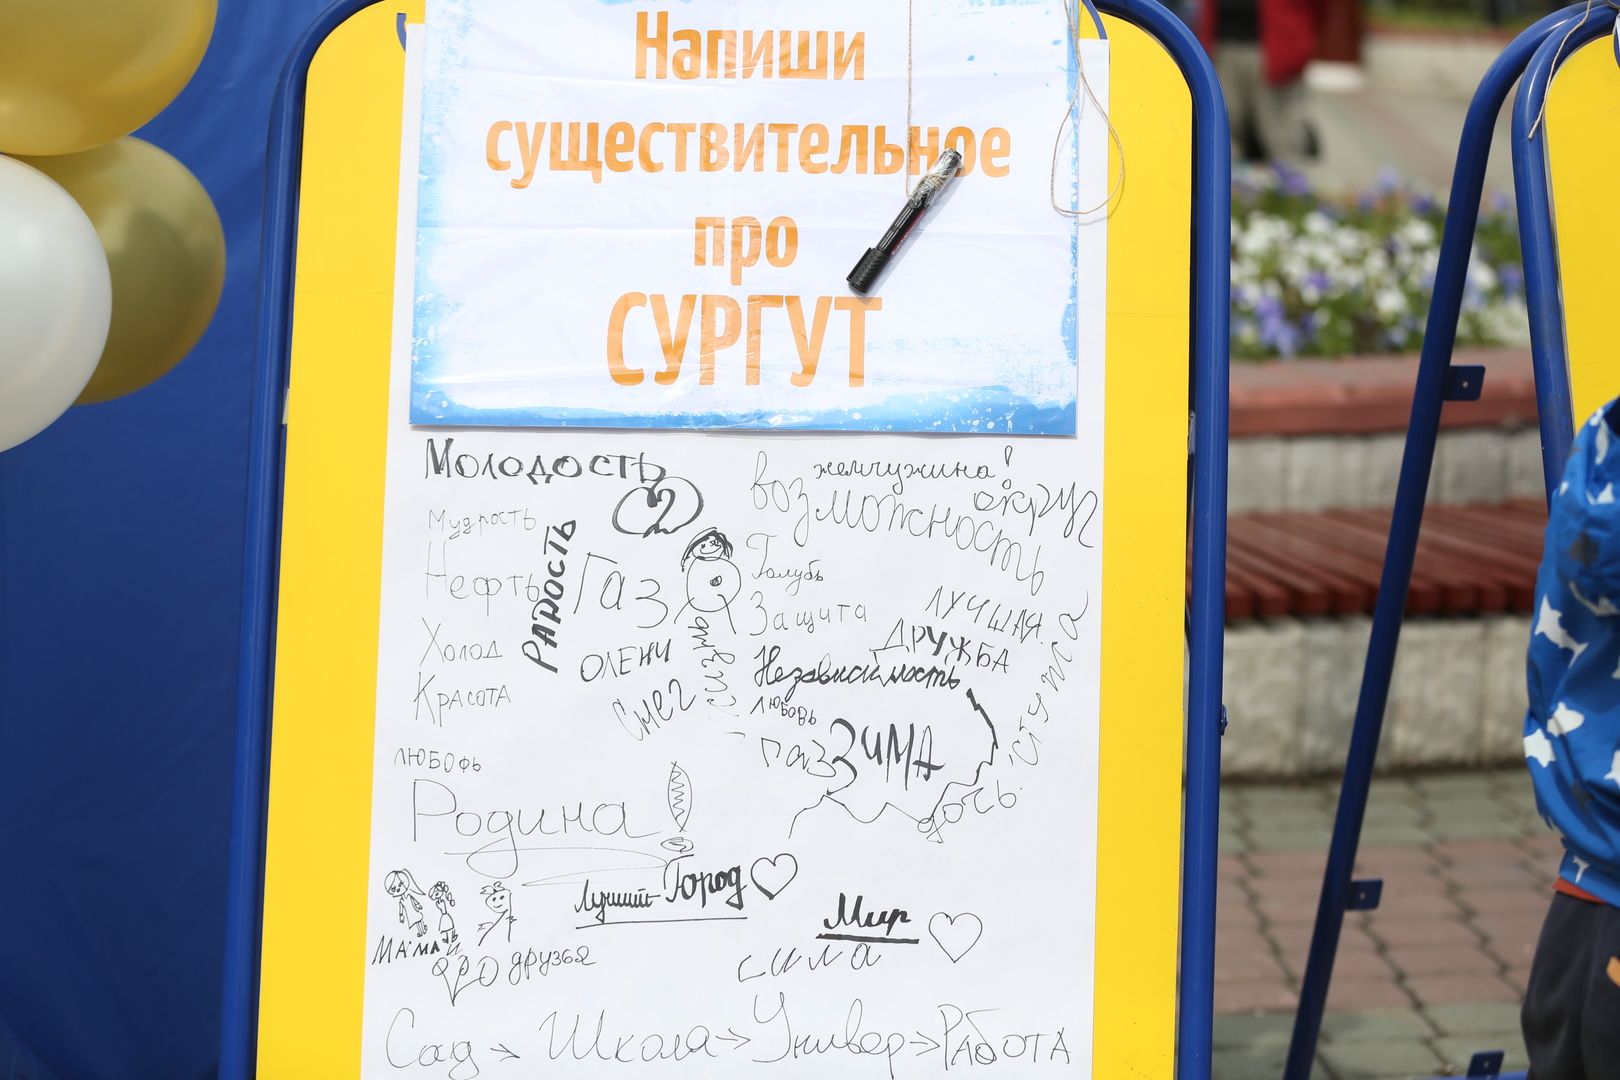 Напиши
существительное
про
СУРГУТ
Молодость
жемчужина!
возможность
округ
Мудрость
Нефть
РАДОСТЬ
Газ
Голубь
Защита
ЛУЧШАЯ
ДРУЖБА
Холод
ОЛЕНИ
Независимость
Красота
Снег
ЛЮБОВЬ
газ
ЗИМА
стужа
ЛЮБОФЬ
Родина
Лучший Город
Мир
сила
МАМА И
друзья
Сад → Школа → Универ → Работа